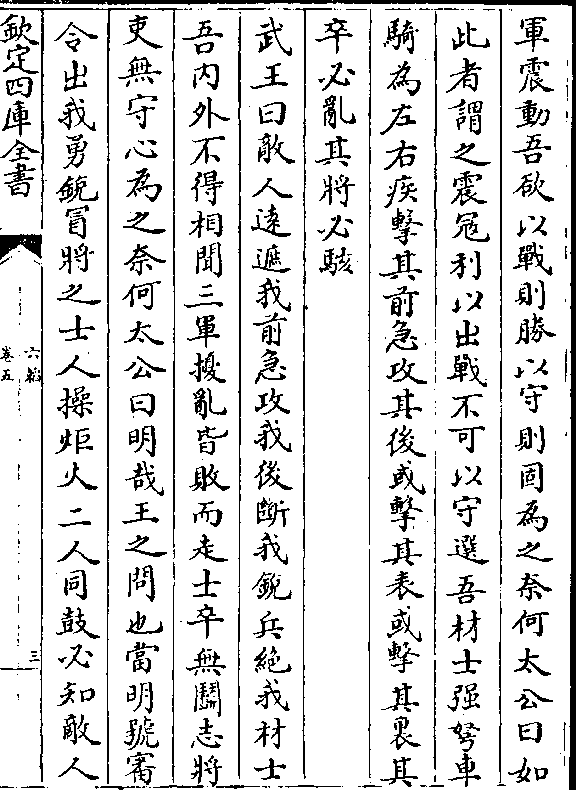 軍震動吾欲以戰則勝以守則固為之奈何太公曰如
此者謂之震冦利以出戰不可以守選吾材士强弩車
騎為左右疾擊其前急攻其後或擊其表或擊其裏其
卒必亂其將必駭
武王曰敵人逺遮我前急攻我後斷我銳兵絶我材士
吾内外不得相聞三軍擾亂皆敗而走士卒無鬭志將
吏無守心為之奈何太公曰明哉王之問也當明號審
令出我勇銳冒將之士人操炬火二人同鼓必知敵人
欽定四庫全書
六韜
卷五
三